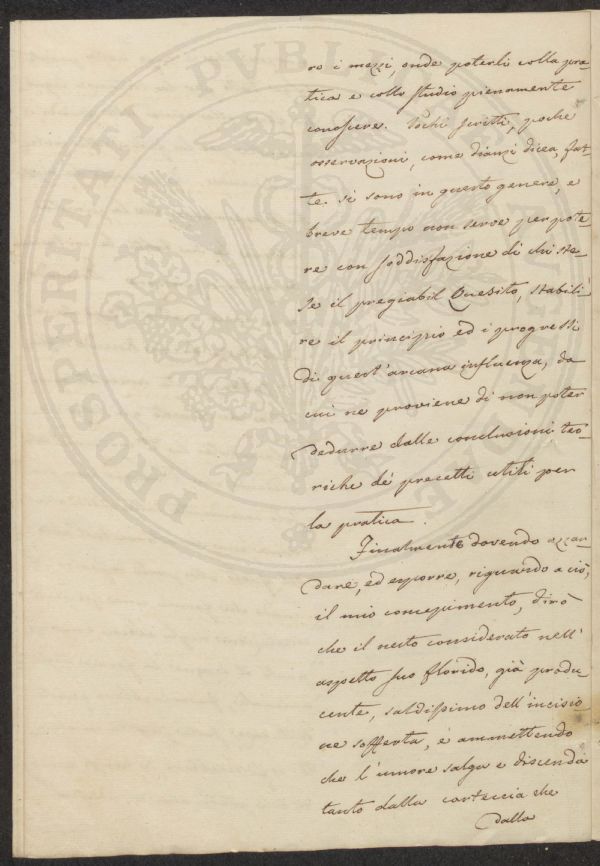 PROSPERITATI PVBLICAE AVGENDAE
ro i mezzi, onde poterli colla pra-
tica e collo studio pienamente
conoscere. Pochi scritti, poche
osservazioni, come dianzi dicea, fat-
te si sono in questo genere, e
breve tempo non serve per pote-
re con soddisfazione di chi ste-
se il pregiabil Quesito, stabili-
re il principio ed i progressi
di quest'arcana influenza, da
cui ne proviene di non poter
dedurre dalle conclusioni teo-
riche de' precetti utili per
la pratica.
Finalmente dovendo azzar-
dare, ed esporre, riguardo a ciò,
il mio concepimento, dirò
che il nesto considerato nell'
aspetto suo florido, già produ-
cente, saldissimo dell'incisio-
ne sofferta, e ammettendo
che l'umore salga e discenda
tanto dalla corteccia che
dalla